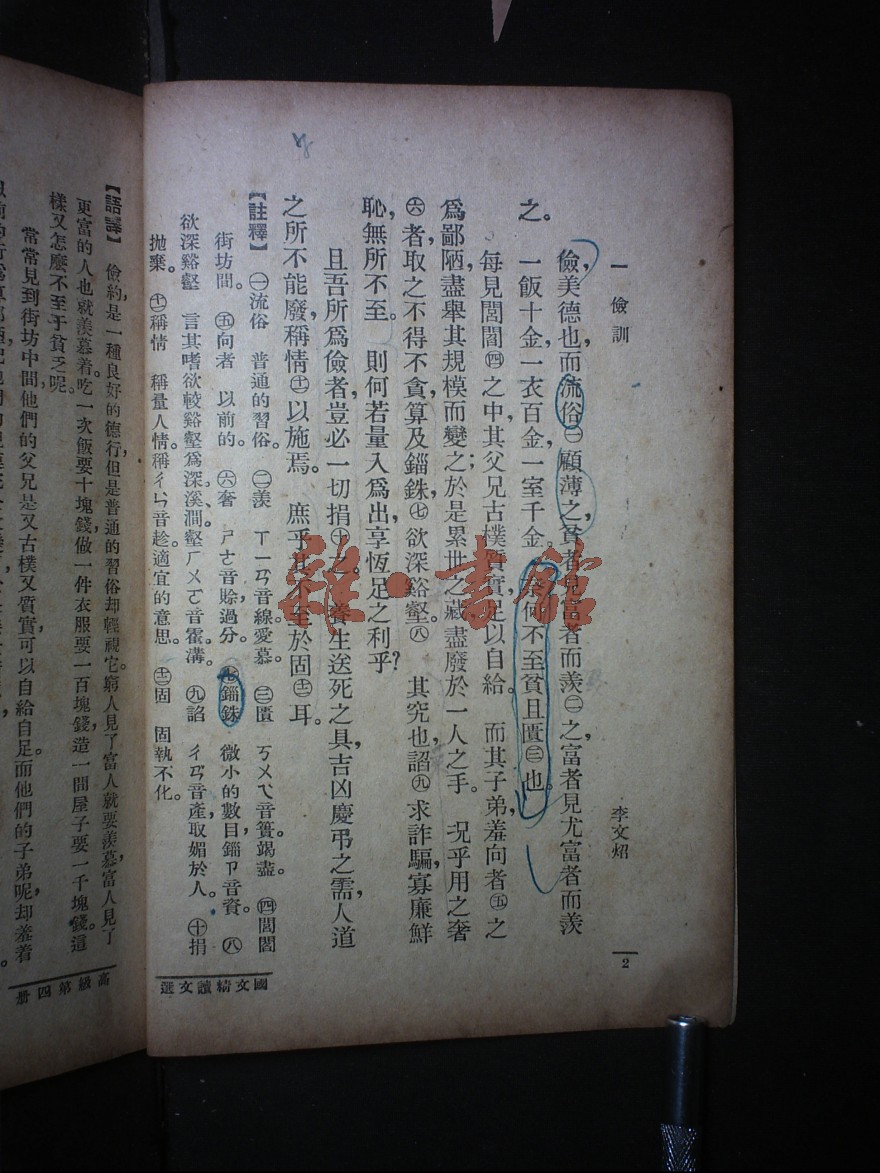 一 儉訓
李文炤
2
儉，美德也，而流俗㊀顧薄之。貧者見富者而羨㊁之，富者見尤富者而羨
之。一飯十金，一衣百金，一室千金，奈何不至貧且匱㊂也。
每見閭閻㊃之中，其父兄古樸質實，足以自給。而其子弟羞向者㊄之
爲鄙陋，盡舉其規模而變之；於是累世之藏，盡廢於一人之手。況乎用之奢
㊅者，取之不得不貪，算及錙銖㊆，欲深谿壑㊇。其究也，諂㊈求詐騙，寡廉鮮
恥，無所不至。則何若量入爲出，享恆足之利乎？
且吾所爲儉者，豈必一切捐㊉之。養生送死之具，吉凶慶弔之需，人道
之所不能廢，稱情(十一)以施焉。庶乎其不至於固(十二)耳。
【註釋】 ㊀流俗 普通的習俗。 ㊁羨 ㄒㄧㄢ音線，愛慕。 ㊂匱 ㄎㄨㄟ音簣，竭盡。 ㊃閭閻
街坊間。 ㊄向者 以前的。 ㊅奢 ㄕㄜ音賒，過分。 ㊆錙銖 微小的數目，錙ㄗ音資。 ㊇
欲深谿壑 言其嗜欲較谿壑爲深。溪，澗。壑ㄏㄨㄛ音霍，溝。 ㊈諂 ㄔㄢ音產，取媚於人。 ㊉捐
拋棄。 (十一)稱情 稱量人情。稱ㄔㄣ音趁，適宜的意思。 (十二)固 固執不化。
國文精讀文選
雜·書館
【語譯】 儉約，是一種良好的德行，但是普通的習俗却輕視它。窮人見了富人就要羨慕，富人見了
更富的人也就羨慕着。吃一次飯要十塊錢，做一件衣服要一百塊錢，造一間屋子要一千塊錢，這
樣又怎麼不至于貧乏呢。
常常見到街坊中間，他們的父兄是又古樸又質實，可以自給自足。而他們的子弟呢，却羞着
高級第四册